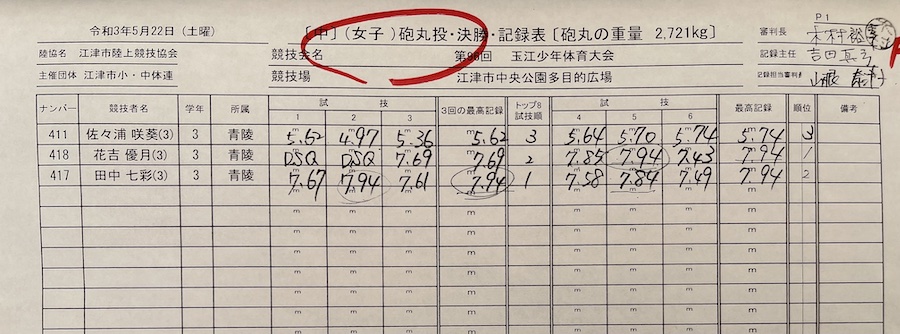 P1
令和3年5月22日(土曜)
[中](女子)砲丸投・決勝・記録表[砲丸の重量 2,721kg]
審判長
陸協名 江津市陸上競技協会
競技会名 第98回 玉江少年体育大会
記録主任
主催団体 江津市小・中体連
競技場 江津市中央公園多目的広場
記録担当審判員
ナンバー 競技者名 学年 所属 試技 1 2 3 3回の最高記録 トップ8試技順 試技 4 5 6 最高記録 順位 備考
411 佐々浦 咲葵(3) 3 青陵 5.52 4.97 5.36 5.62 3 5.64 5.70 5.74 5.74 3
418 花吉 優月(3) 3 青陵 DSQ DSQ 7.69 7.69 2 7.85 7.94 7.43 7.94 1
417 田中 七彩(3) 3 青陵 7.67 7.94 7.61 7.94 1 7.58 7.84 7.49 7.94 2
m m m m m m m m
m m m m m m m m
m m m m m m m m
m m m m m m m m
m m m m m m m m
m m m m m m m m
m m m m m m m m